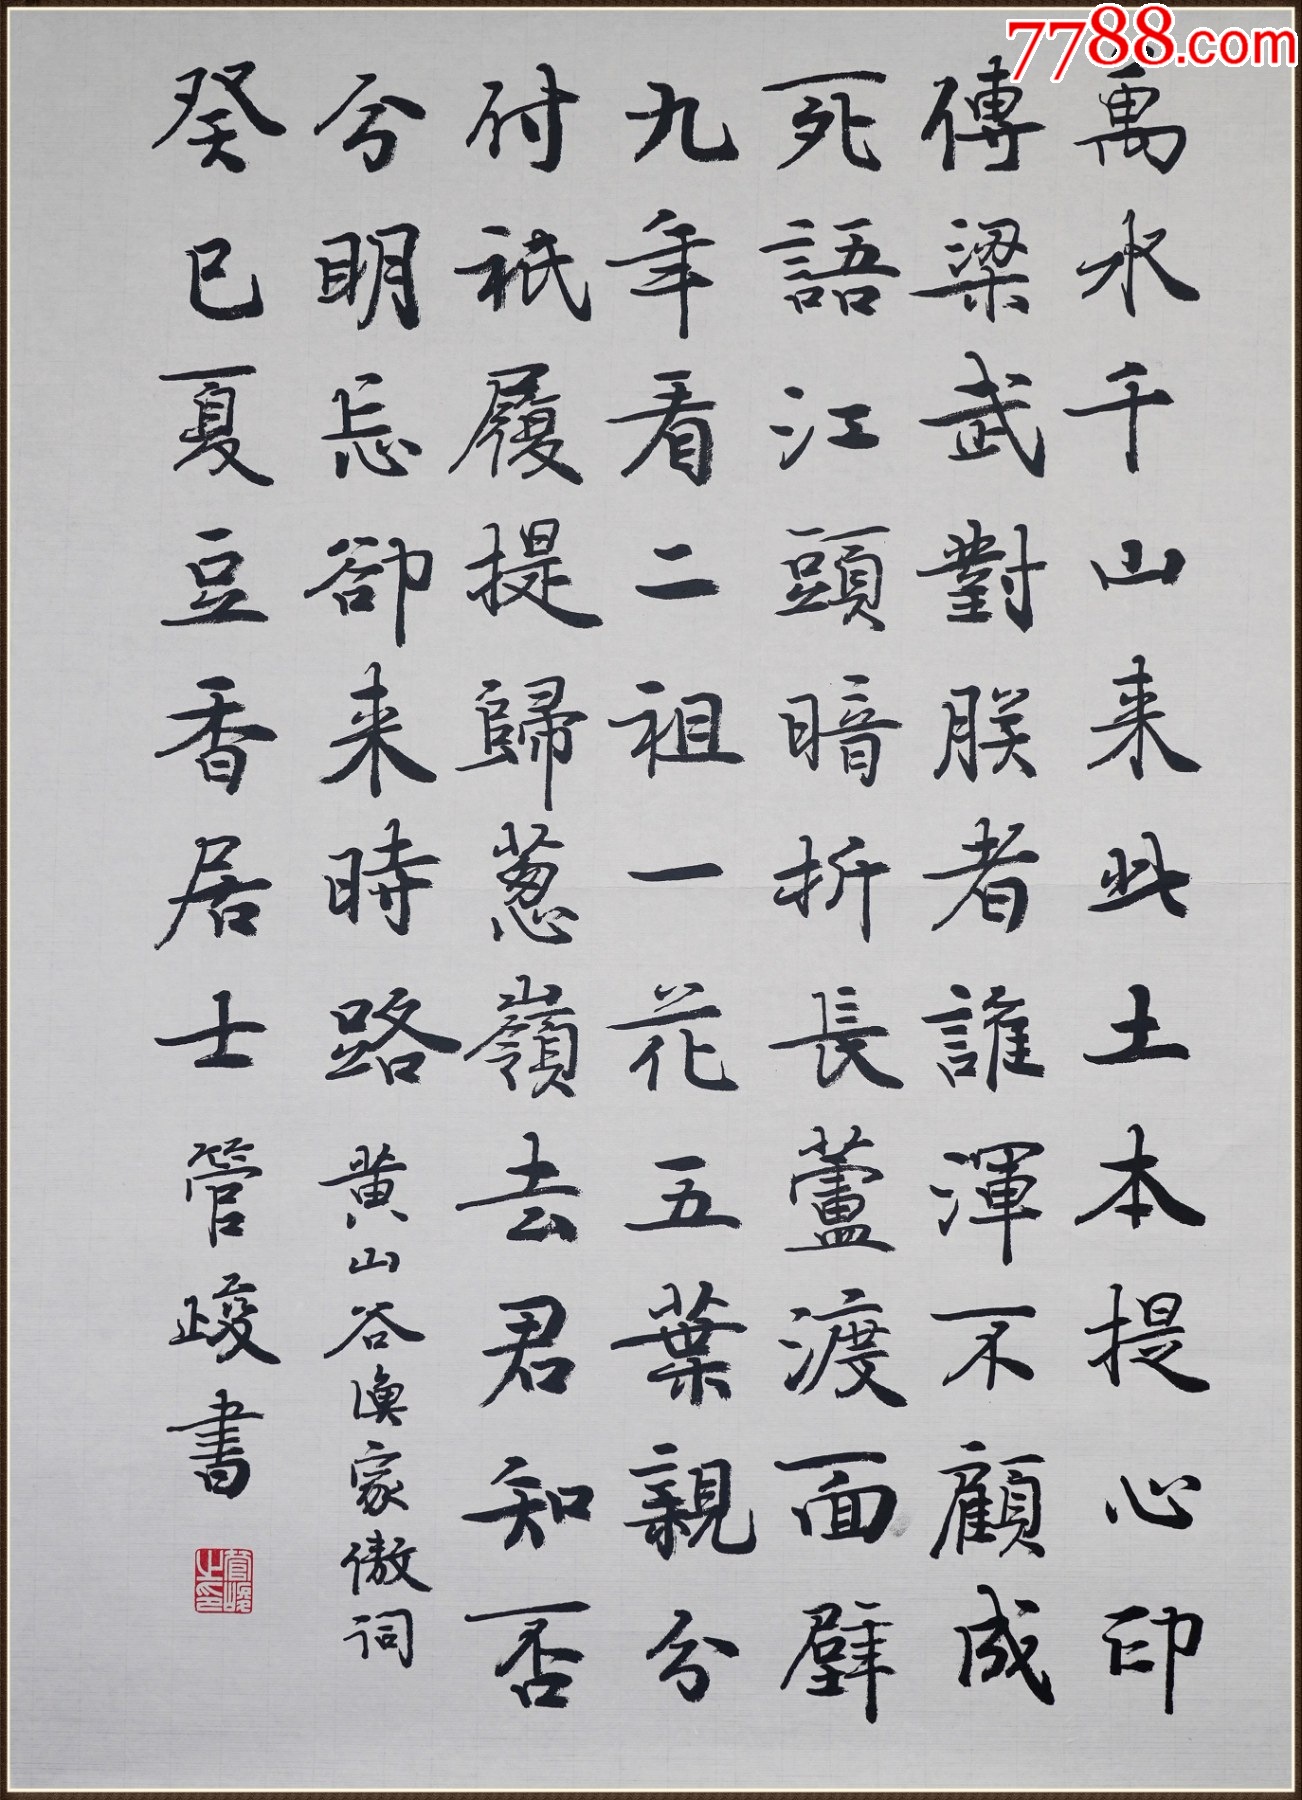 7788.com
萬水千山来此土本提心印
傳梁武對朕者誰渾不顧成
死語江頭暗折長蘆渡面壁
九年看二祖一花五葉親分
付祇履提歸葱嶺去君知否
分明忘卻来時路 黄山谷漁家傲詞
癸巳夏豆香居士 管峻書
管峻之印